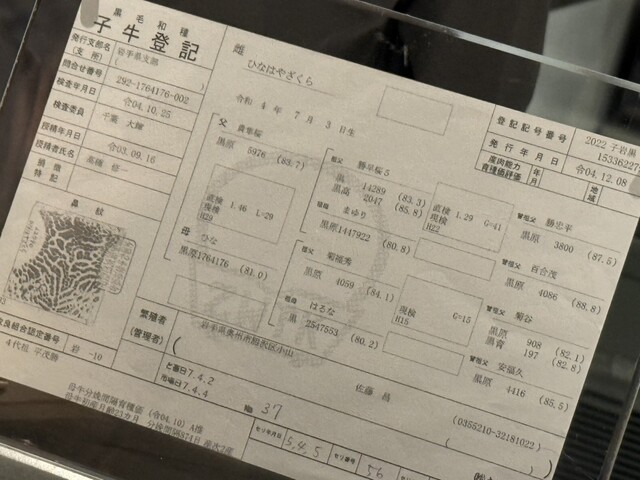 黒毛和種
子牛登記
発行支部名
(支所)
岩手県支部
(
)
問合せ番号
292-1764176-002
検査年月日
令04.10.25
検査委員
千葉 大輝
授精年月日
令03.09.16
授精者氏名
高橋 修一
損徴
特記
鼻紋
改良組合認定番号
岩 -10
4代祖 平茂勝
雌
ひなはやざくら
令和 4 年 7 月 3 日生
登記記号番号
2022 子岩黒
15336227
発行年月日
令04.12.08
産肉能力
育種価評価
年
月
地
域
父
貴隼桜
黒原 5976 (83.7)
直検
現検
H29
1.46 L-29
母
ひな
黒原1764176 (81.0)
祖父
勝早桜5
黒 14289 (83.3)
黒高 2047 (85.8)
祖母
まゆり
黒原1447922 (80.8)
祖父
菊福秀
黒原 4059 (84.1)
祖母
はるな
黒 2547553 (80.2)
直検
現検
H22
1.29 G-41
現検
H15
G-15
曽祖父
勝忠平
黒原 3800 (87.5)
曽祖父
百合茂
黒原 4086 (88.8)
曽祖父
菊谷
黒原 908 (82.1)
黒育 197 (82.8)
曽祖父
安福久
黒原 4416 (85.5)
繁殖者
(管理者)
岩手県奥州市胆沢区小山
佐藤 昌
(0355210-32181022)
(
)
と畜日7.4.2
市場日7.4.4
No 37
母牛分娩間隔育種価 (令04.10) A推
母牛初産月齢23カ月 分娩間隔374日 産次7産
セリ年月日
5.4.5
セリ番号
56